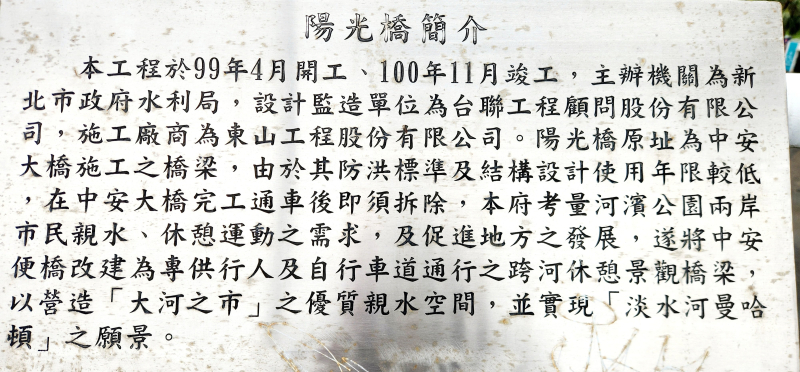 陽光橋簡介
本工程於99年4月開工、100年11月竣工，主辦機關為新
北市政府水利局，設計監造單位為台聯工程顧問股份有限公
司，施工廠商為東山工程股份有限公司。陽光橋原址為中安
大橋施工之橋梁，由於其防洪標準及結構設計使用年限較低
，在中安大橋完工通車後即須拆除，本府考量河濱公園兩岸
市民親水、休憩運動之需求，及促進地方之發展，遂將中安
便橋改建為專供行人及自行車道通行之跨河休憩景觀橋梁，
以營造「大河之市」之優質親水空間，並實現「淡水河曼哈
頓」之願景。